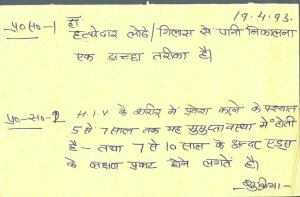 19.4.93.
प्र०सं०-1 हाँ
हत्थेदार लोटे/गिलास से पानी निकालना
एक अच्छा तरीका है।
प्र०-सं०-2 H.I.V के शरीर में प्रवेश करने के पश्चात
5 से 7 साल तक यह सुसुप्तावस्था में होती
है - तथा 7 से 10 साल के अन्दर एड्स
के लक्षण प्रकट होने लगते हैं।
शुक्रिया-